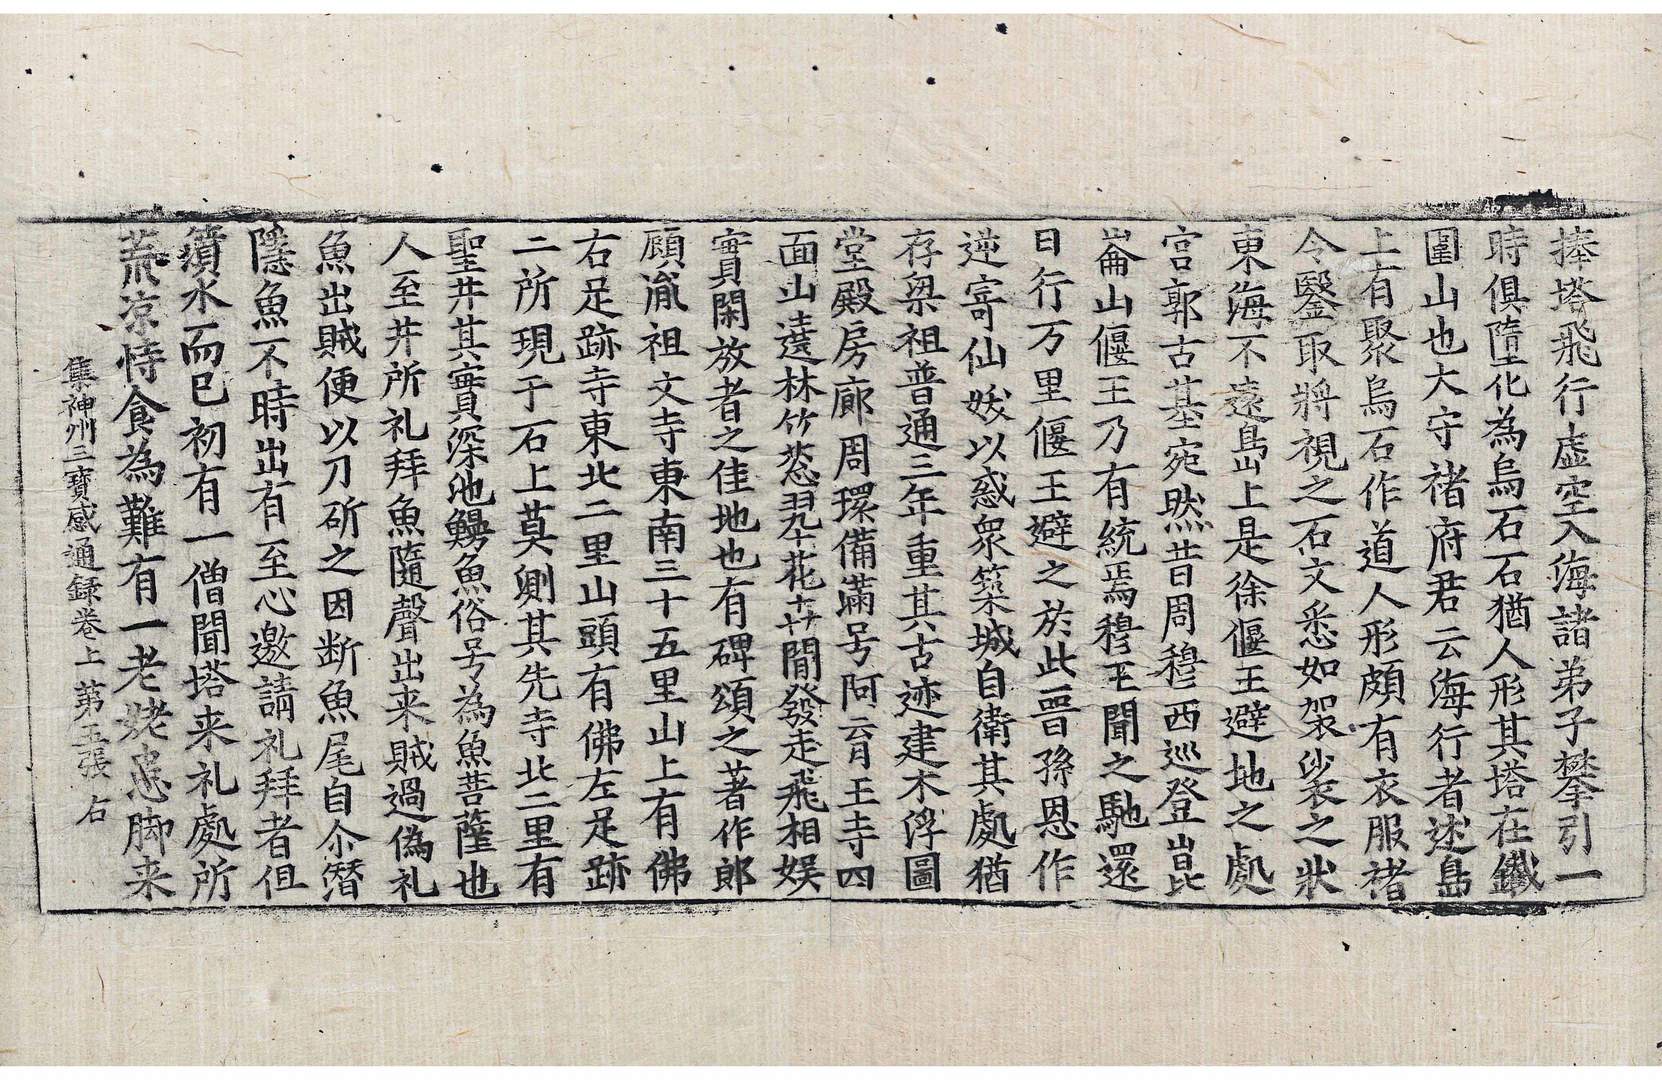 捧塔飛行虛空入海諸弟子攀引一
時俱墮化為烏石石猶人形其塔在鐵
圍山也大守褚府君云海行者述島
上有聚烏石作道人形頗有衣服褚
令鑿取將視之石文悉如袈裟之狀
東海不遠島上是徐偃王避地之處
宮郭古基宛然昔周穆西巡登崑
崙山偃王乃有統焉穆王聞之馳還
日行万里偃王避之於此晉孫恩作
逆寄仙妖以惑衆築城自衛其處猶
存梁祖普通三年重其古迹建木浮圖
堂殿房廊周環備滿号阿育王寺四
面山遶林竹葱翠花卉間發走飛相娛
實閑放者之佳地也有碑頌之著作郎
顧胤祖文寺東南三十五里山上有佛
右足跡寺東北二里山頭有佛左足跡
二所現于石上莫測其先寺北二里有
聖井其實深池鰻魚俗号為魚菩薩也
人至井所礼拜魚隨聲出来賊過偽礼
魚出賊便以刀斫之因断魚尾自尒潛
隱魚不時出有至心邀請礼拜者但
濆水而已初有一僧聞塔来礼處所
荒凉恃食為難有一老姥患脚来
集神州三寶感通録卷上 第五張 右